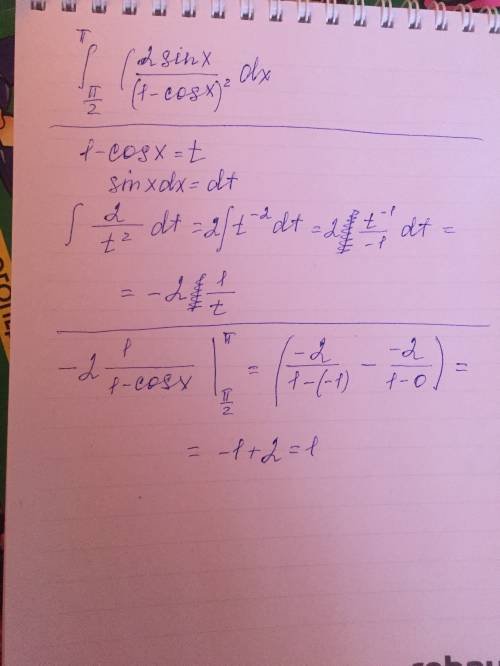 π
∫ ( 2 sin x / (1-cosx)² dx
π/2
1-cosx=t
sinxdx=dt
∫ 2/t² dt = 2∫t⁻² dt = 2 t⁻¹/-1 dt =
= -2 1/t
-2 1/(1-cosx) |π π/2 = (-2/(1-(-1)) - -2/(1-0)) =
= -1+2=1